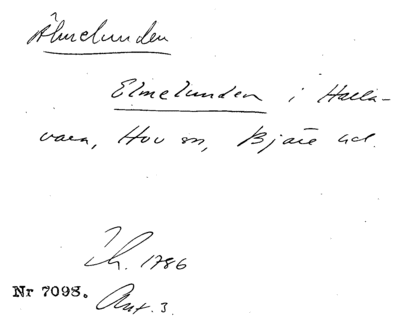 Älmelunden
Elmelunden i Halla-
vara, Hov sn, Bjäre hd.
Lh. 1786
Nr 7098. Ant. 3.